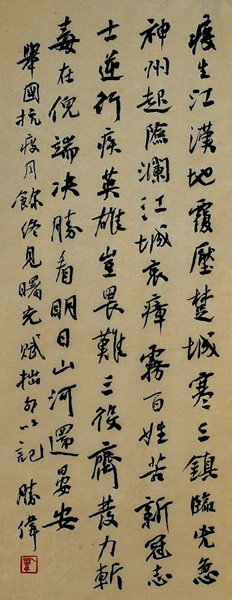 疫生江漢地覆壓楚城寒三鎮臨兇急
神州起險瀾江城哀瘴霧百姓苦新冠志
士逆行疾英雄豈畏難三役齊發力斬
毒在倪端决勝看明日山河還晏安
舉國抗疫月餘終見曙光賦拙句以記 勝偉